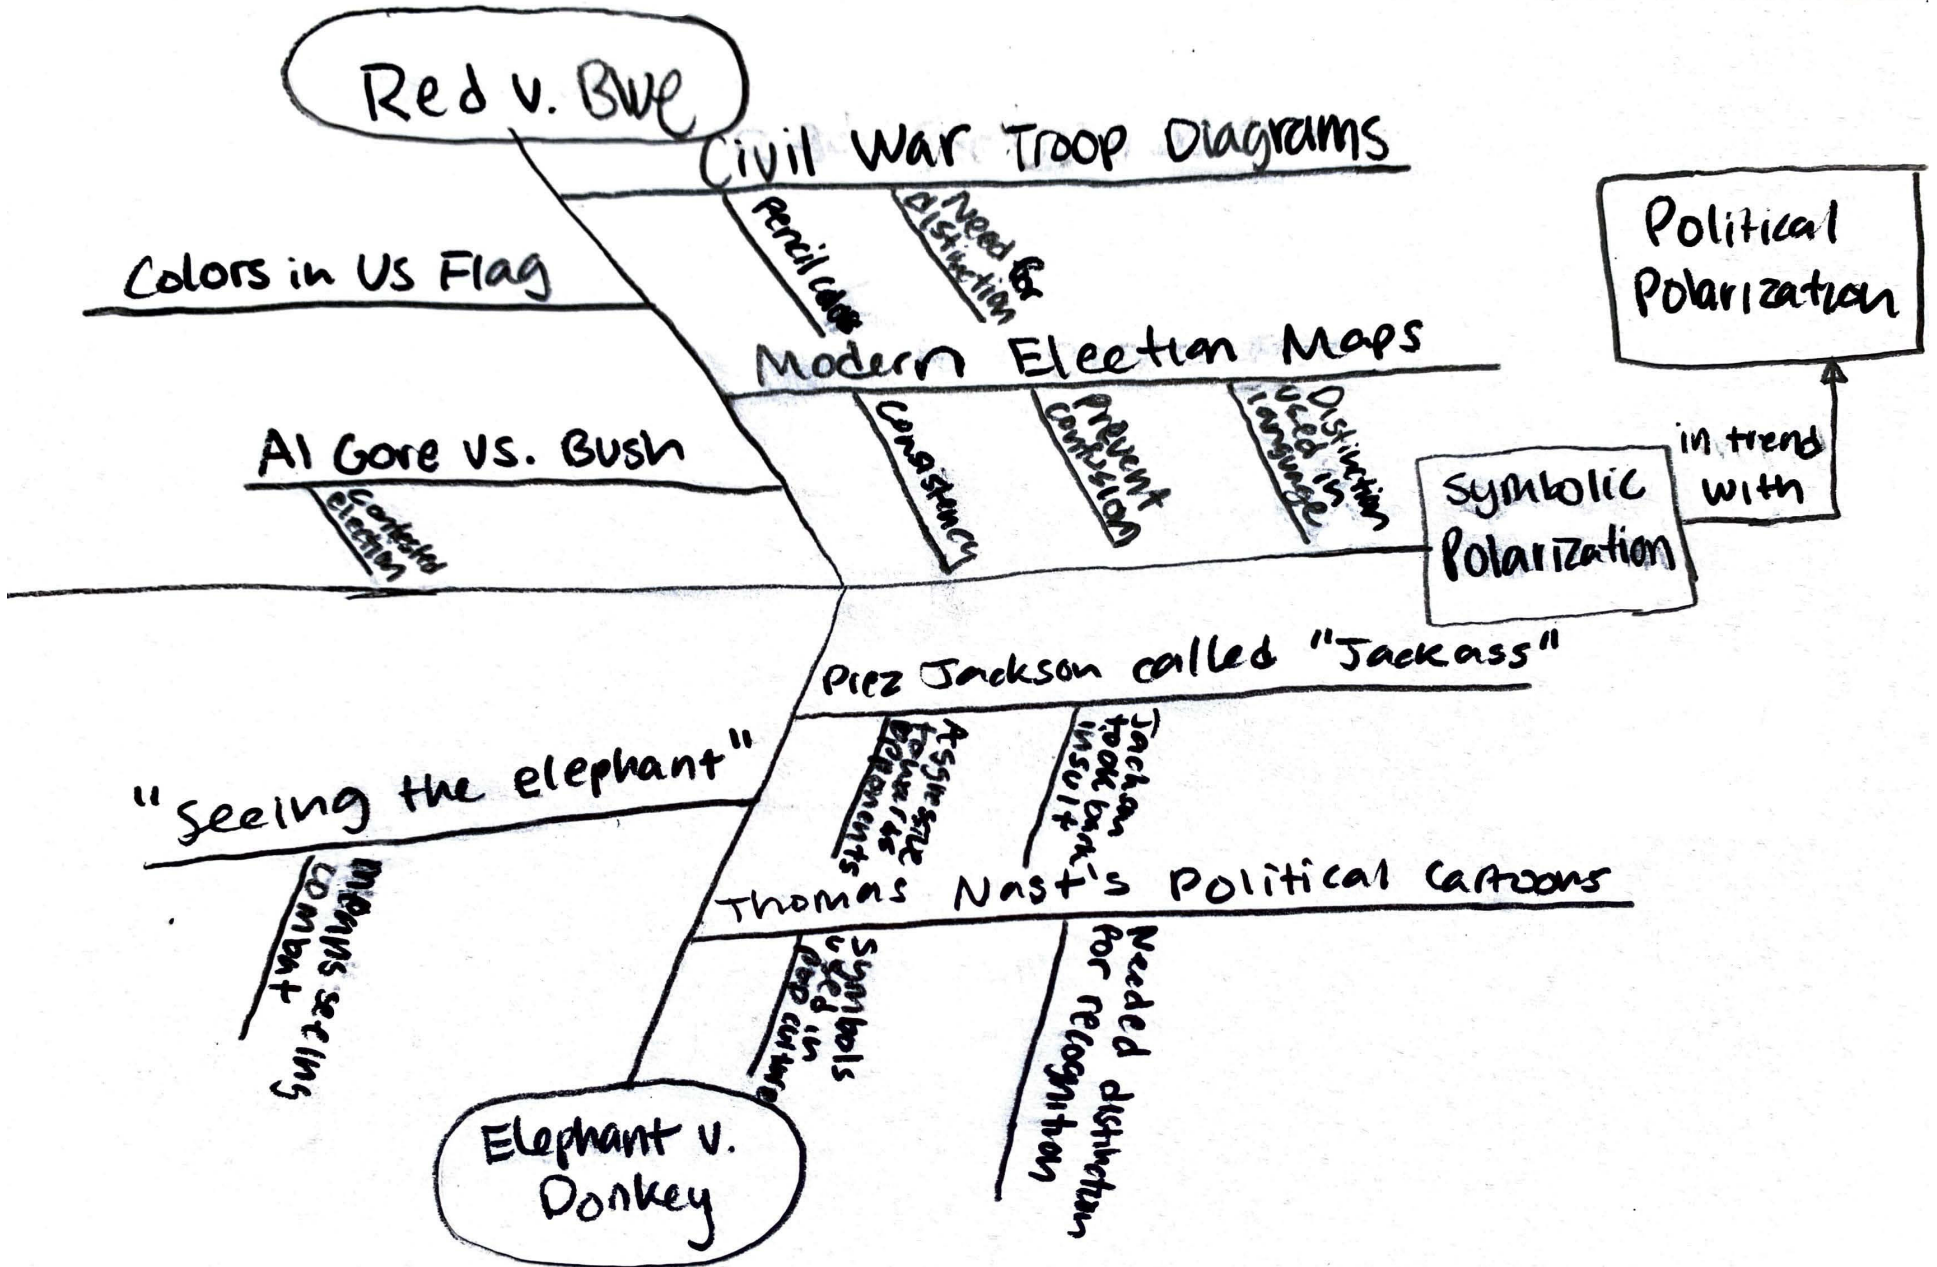 Red v. Blue
Civil War Troop Diagrams
pencil colors
Need for
distinction
Colors in US Flag
Political
Polarization
Modern Election Maps
Consistency
Prevent
confusion
Distinction
used in
language
Al Gore vs. Bush
Contested
election
in trend
with
Symbolic
Polarization
Prez Jackson called "Jackass"
Aggressive
towards
opponents
took back
insult
"seeing the elephant"
means seeing
combat
Thomas Nast's Political Cartoons
Symbols
used in
pop culture
Needed distinction
for recognition
Elephant v.
Donkey